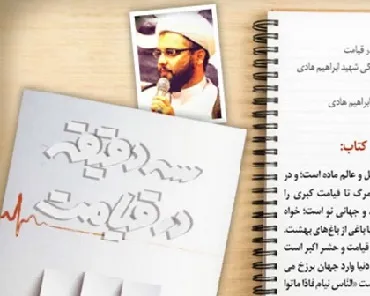 سه دقیقه
در قیامت
در قیامت
شهید ابراهیم هادی
ابراهیم هادی
کتاب:
و عالم ماده است؛ و در
مرگ تا قیامت کبری را
و جهانی تو است؛ خواه
باغی از باغ‌های بهشت.
قیامت و حشر اکبر است
دنیا وارد جهان برزخ می
«النّاس نیام فاذا ماتوا